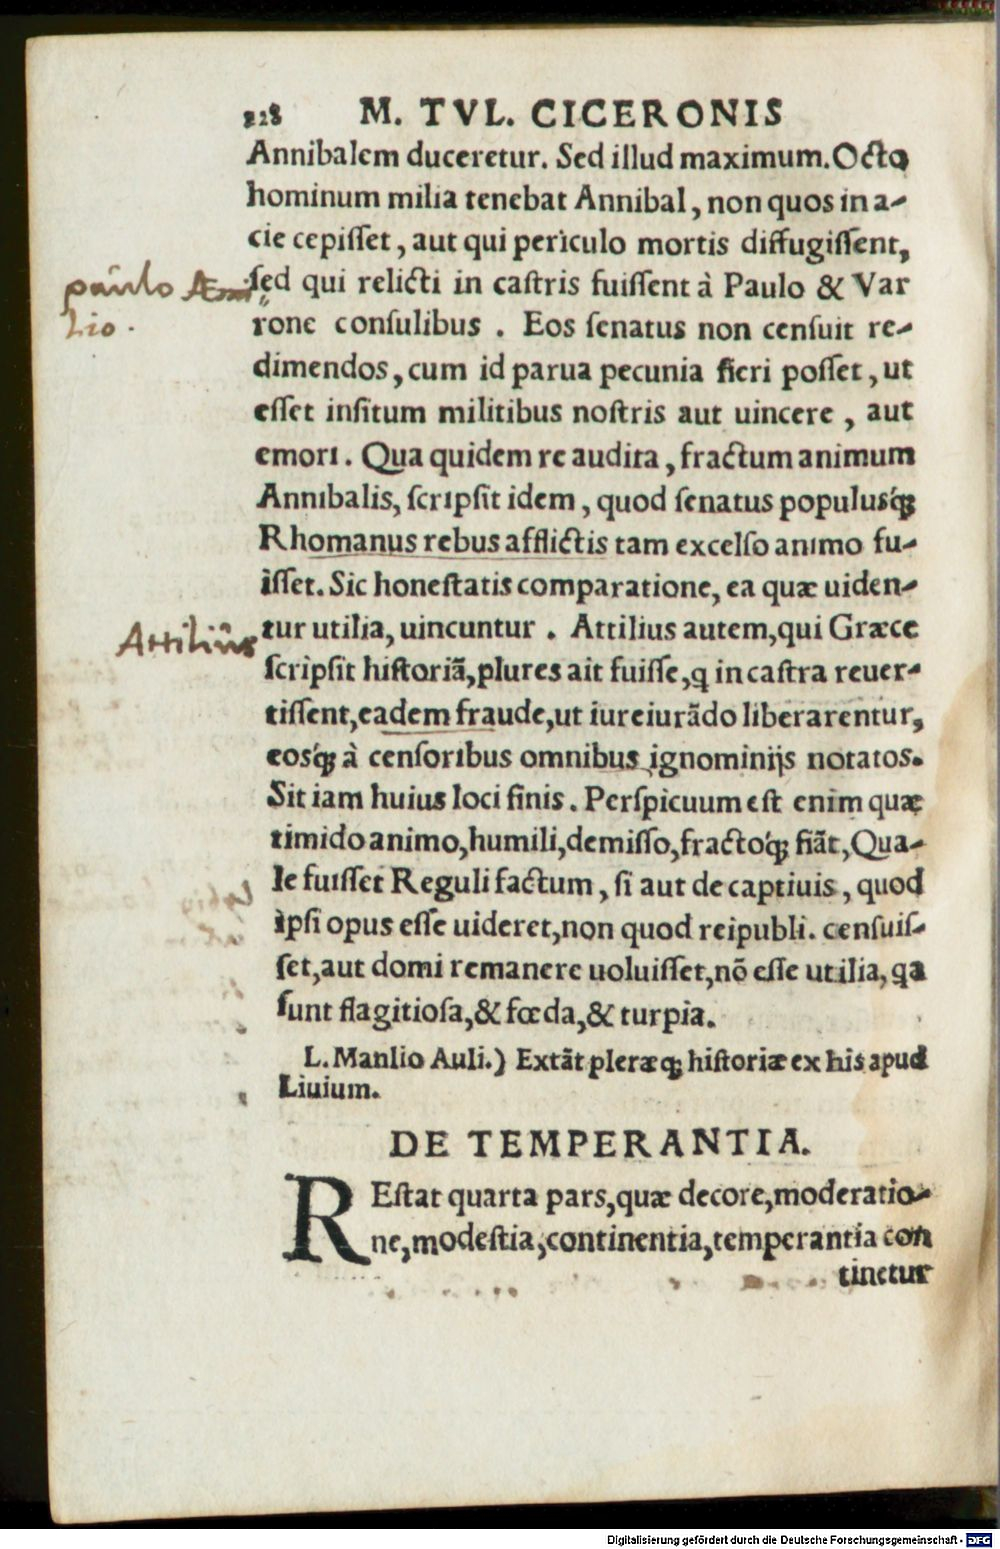 228 M. TVL. CICERONIS
Annibalem duceretur. Sed illud maximum. Octo
hominum milia tenebat Annibal, non quos in a-
cie cepiſſet, aut qui periculo mortis diffugiſſent,
ſed qui relicti in caſtris fuiſſent à Paulo & Var
paulo Æmi
lio.
rone conſulibus . Eos ſenatus non cenſuit re-
dimendos, cum id parua pecunia fieri poſſet, ut
eſſet inſitum militibus noſtris aut uincere , aut
emori . Qua quidem re audita, fractum animum
Annibalis, ſcripſit idem, quod ſenatus populusq́;
Rhomanus rebus afflictis tam excelſo animo fu-
iſſet. Sic honeſtatis comparatione, ea quæ uiden-
tur utilia, uincuntur . Attilius autem, qui Græce
Attiliûs
ſcripſit hiſtoriã, plures ait fuiſſe, q in caſtra reuer-
tiſſent, eadem fraude, ut iureiurãdo liberarentur,
eosq́; à cenſoribus omnibus ignominijs notatos.
Sit iam huius loci finis. Perſpicuum eſt enim quæ
timido animo, humili, demiſſo, fractoq́; fiãt, Qua-
le fuiſſet Reguli factum, ſi aut de captiuis, quod
ipſi opus eſſe uideret, non quod reipubli. cenſuiſ-
ſet, aut domi remanere uoluiſſet, nõ eſſe utilia, qa
ſunt flagitioſa, & fœda, & turpia.
L. Manlio Auli.) Extãt pleræq; hiſtoriæ ex his apud
Liuium.
DE TEMPERANTIA.
REſtat quarta pars, quæ decore, moderatio-
ne, modeſtia, continentia, temperantia con
tinetur
Digitalisierung gefördert durch die Deutsche Forschungsgemeinschaft - DFG